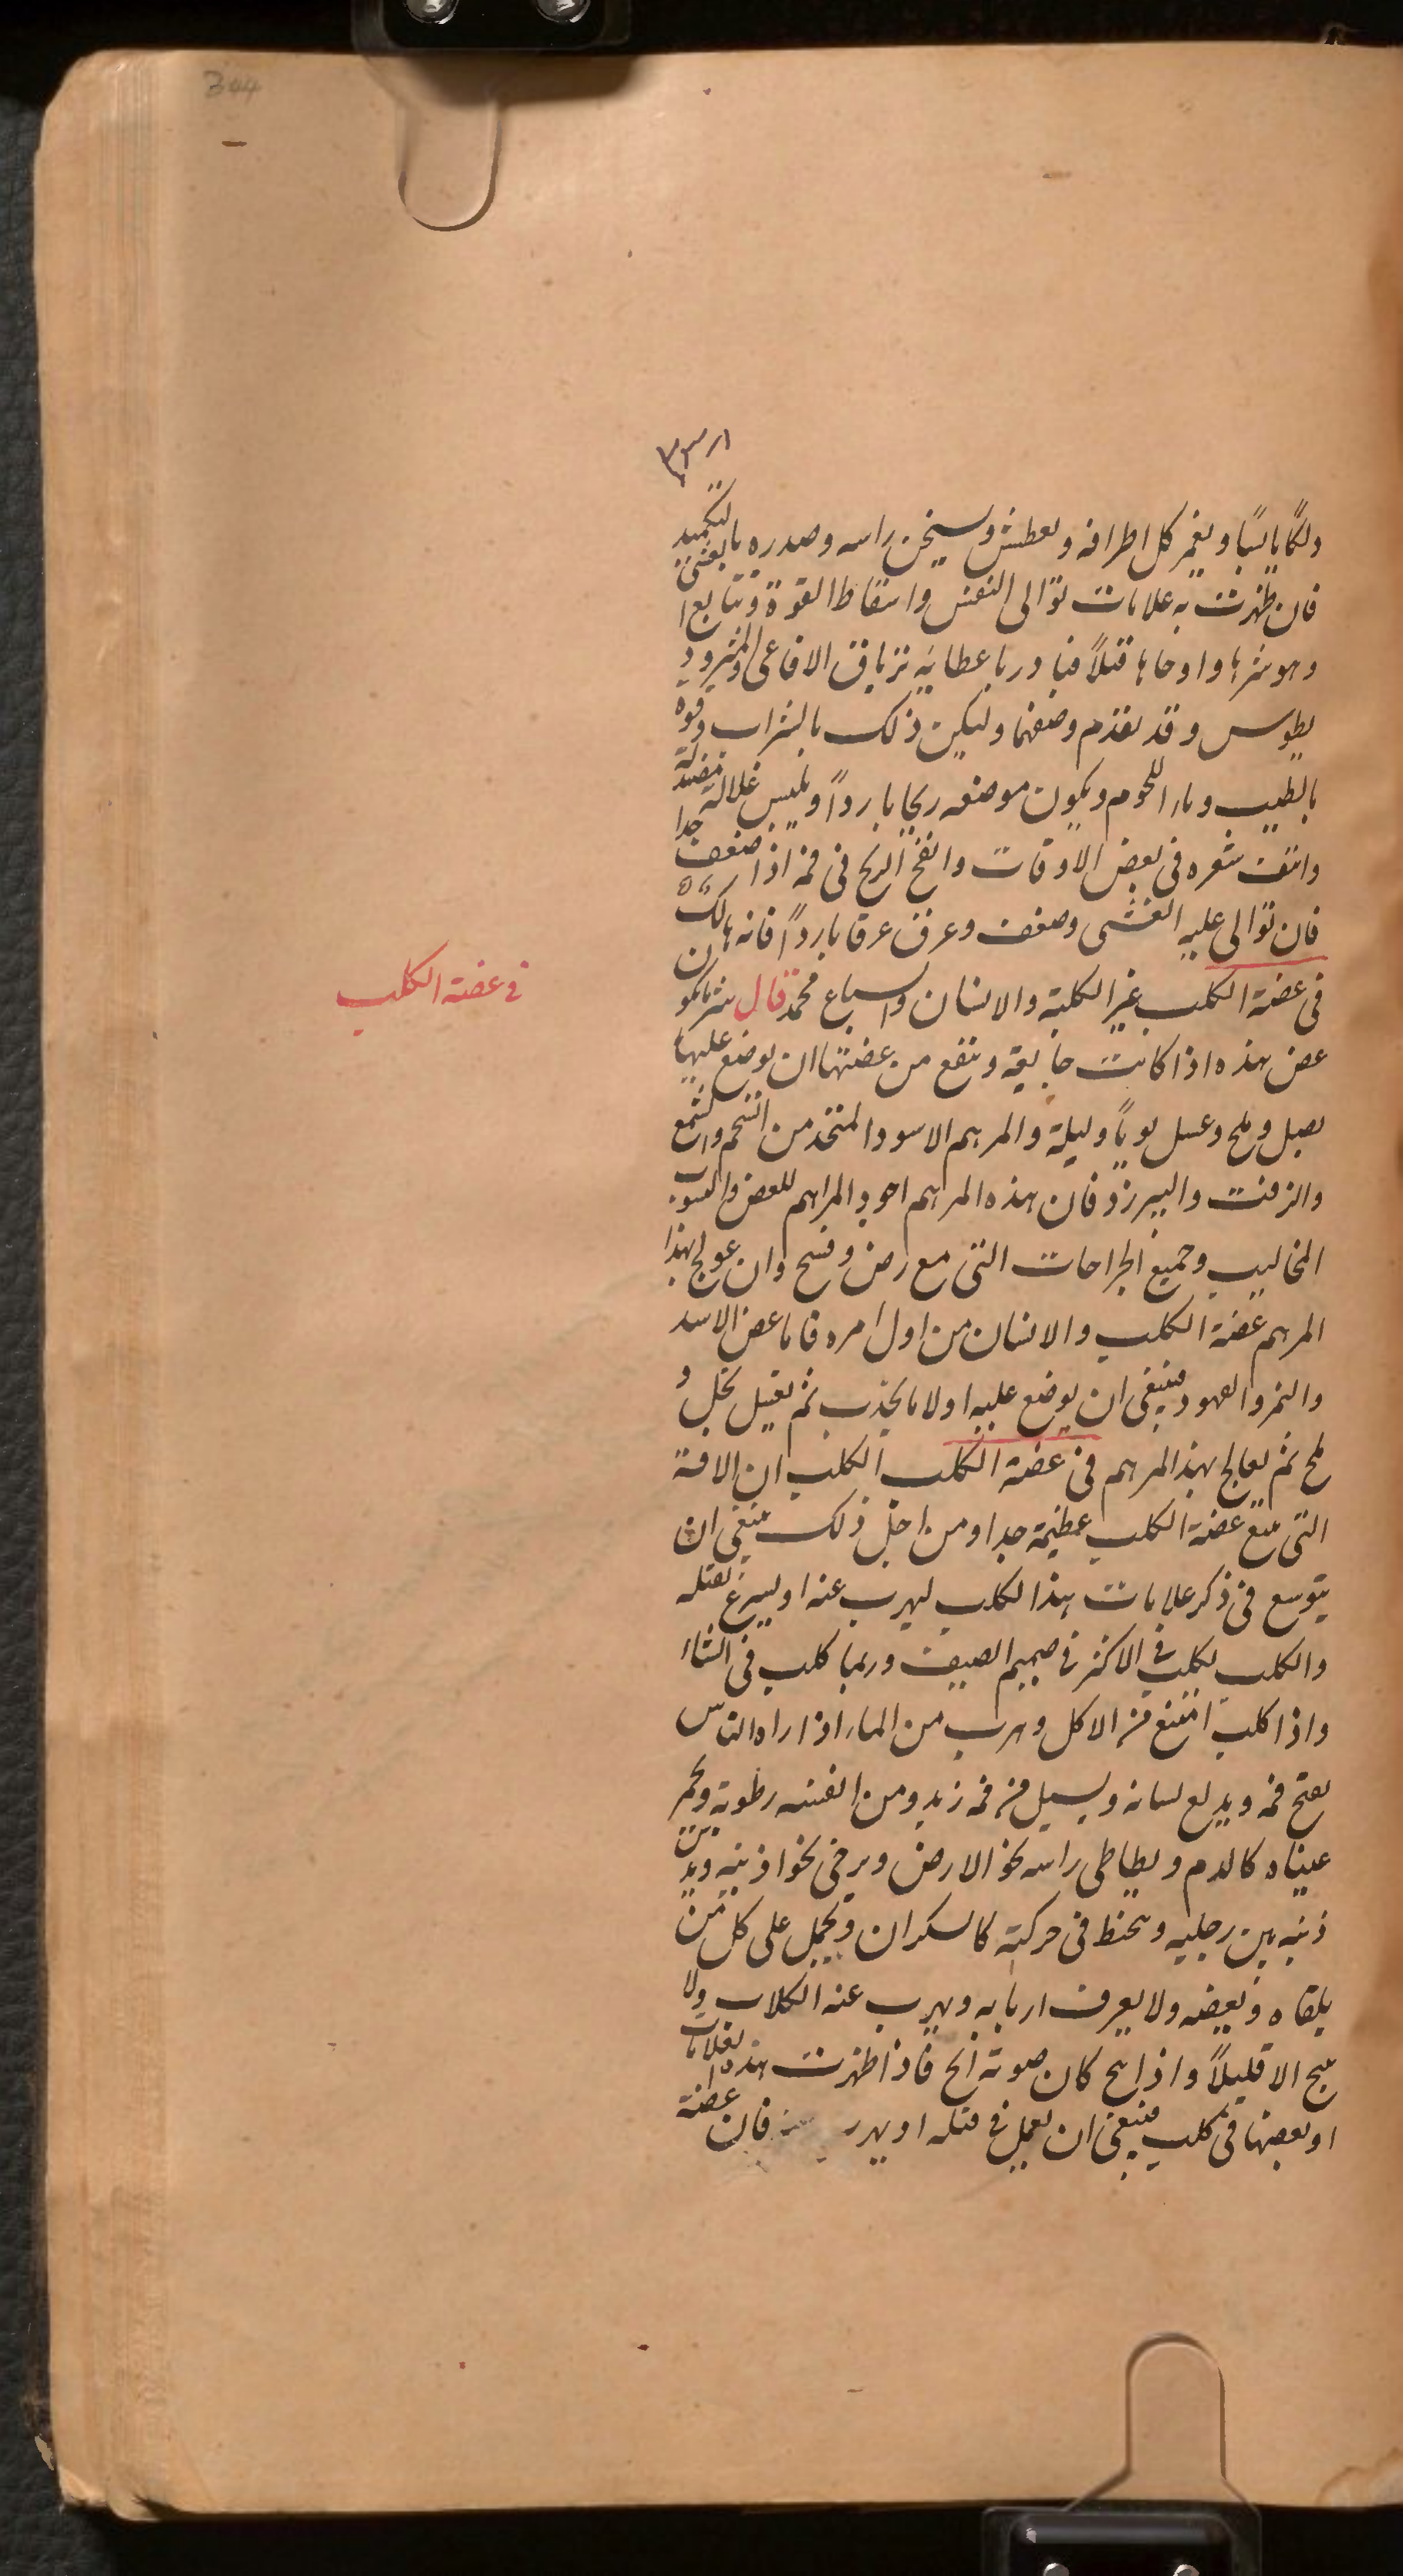 344
دلكا يابسًا ويغمر كل اطرافه ويعطش ويسخن راسه وصدره بالتكميد
فان ظهرت به علامات توالى النفس واسقاط القوة وتتابع الغشى
وهو شرها واوحاها قتلاً فبادر باعطائه ترياق الافاعى والمثرود
يطوس وقد تقدم وصفهما وليكن ذلك بالشراب وقوه
بالطيب وماء اللحوم ويكون موضعه ريحا باردًا ويلبس غلالة مصندلة
وانتف شعره فى بعض الاوقات وانفخ الريح فى فمه اذا ضعف جدا
فان توالى عليه الغشى وضعف وعرق عرقا باردًا فانه هالك
فى عضة الكلب
فى عضة الكلب غير الكلبة والانسان والسباع محمد قال شر ما يكون
عض هذه اذا كانت جايعة وينفع من عضتها ان يوضع عليها
بصل وملح وعسل يومًا وليلة والمرهم الاسود المتخذ من الشحم والشمع
والزفت والبيرزد فان هذه المرهم اجود المراهم للعض ولنشوب
المخاليب وجميع الجراحات التى مع رض وفسخ وان عولج بهذا
المرهم عضة الكلب والانسان من اول امره فاما عض الاسد
والنمر والفهود فينبغى ان يوضع عليه اولا ما يجذب ثم يغسل بخل و
ملح ثم يعالج بهذا المرهم فى عضة الكلب الكلب ان الافة
التى تتبع عضة الكلب عظيمة جدا ومن اجل ذلك ينبغى ان
يتوسع فى ذكر علامات هذا الكلب ليهرب عنه او ليسرع بقتله
والكلب يكلب فى الاكثر فى صميم الصيف وربما كلب فى الشتاء
واذا كلب امتنع من الاكل وهرب من الماء اذا راه الناس
يفتح فمه ويدلع لسانه ويسيل من فمه زبد ومن انفسه رطوبة ويحمر
عيناه كالدم ويطاطى راسه نحو الارض ويرخى نحو اذنيه ويدس
ذنبه بين رجليه ويتخبط فى حركته كالسكران ويحمل على كل من
يلقاه ويعضه ولا يعرف اربابه ويهرب عنه الكلاب ولا
ينبح الا قليلاً واذا نبح كان صوته ابح فاذا ظهرت هذه العلامات
او بعضها فى كلب فينبغى ان يعمل فى قتله او يهرب فان عضة